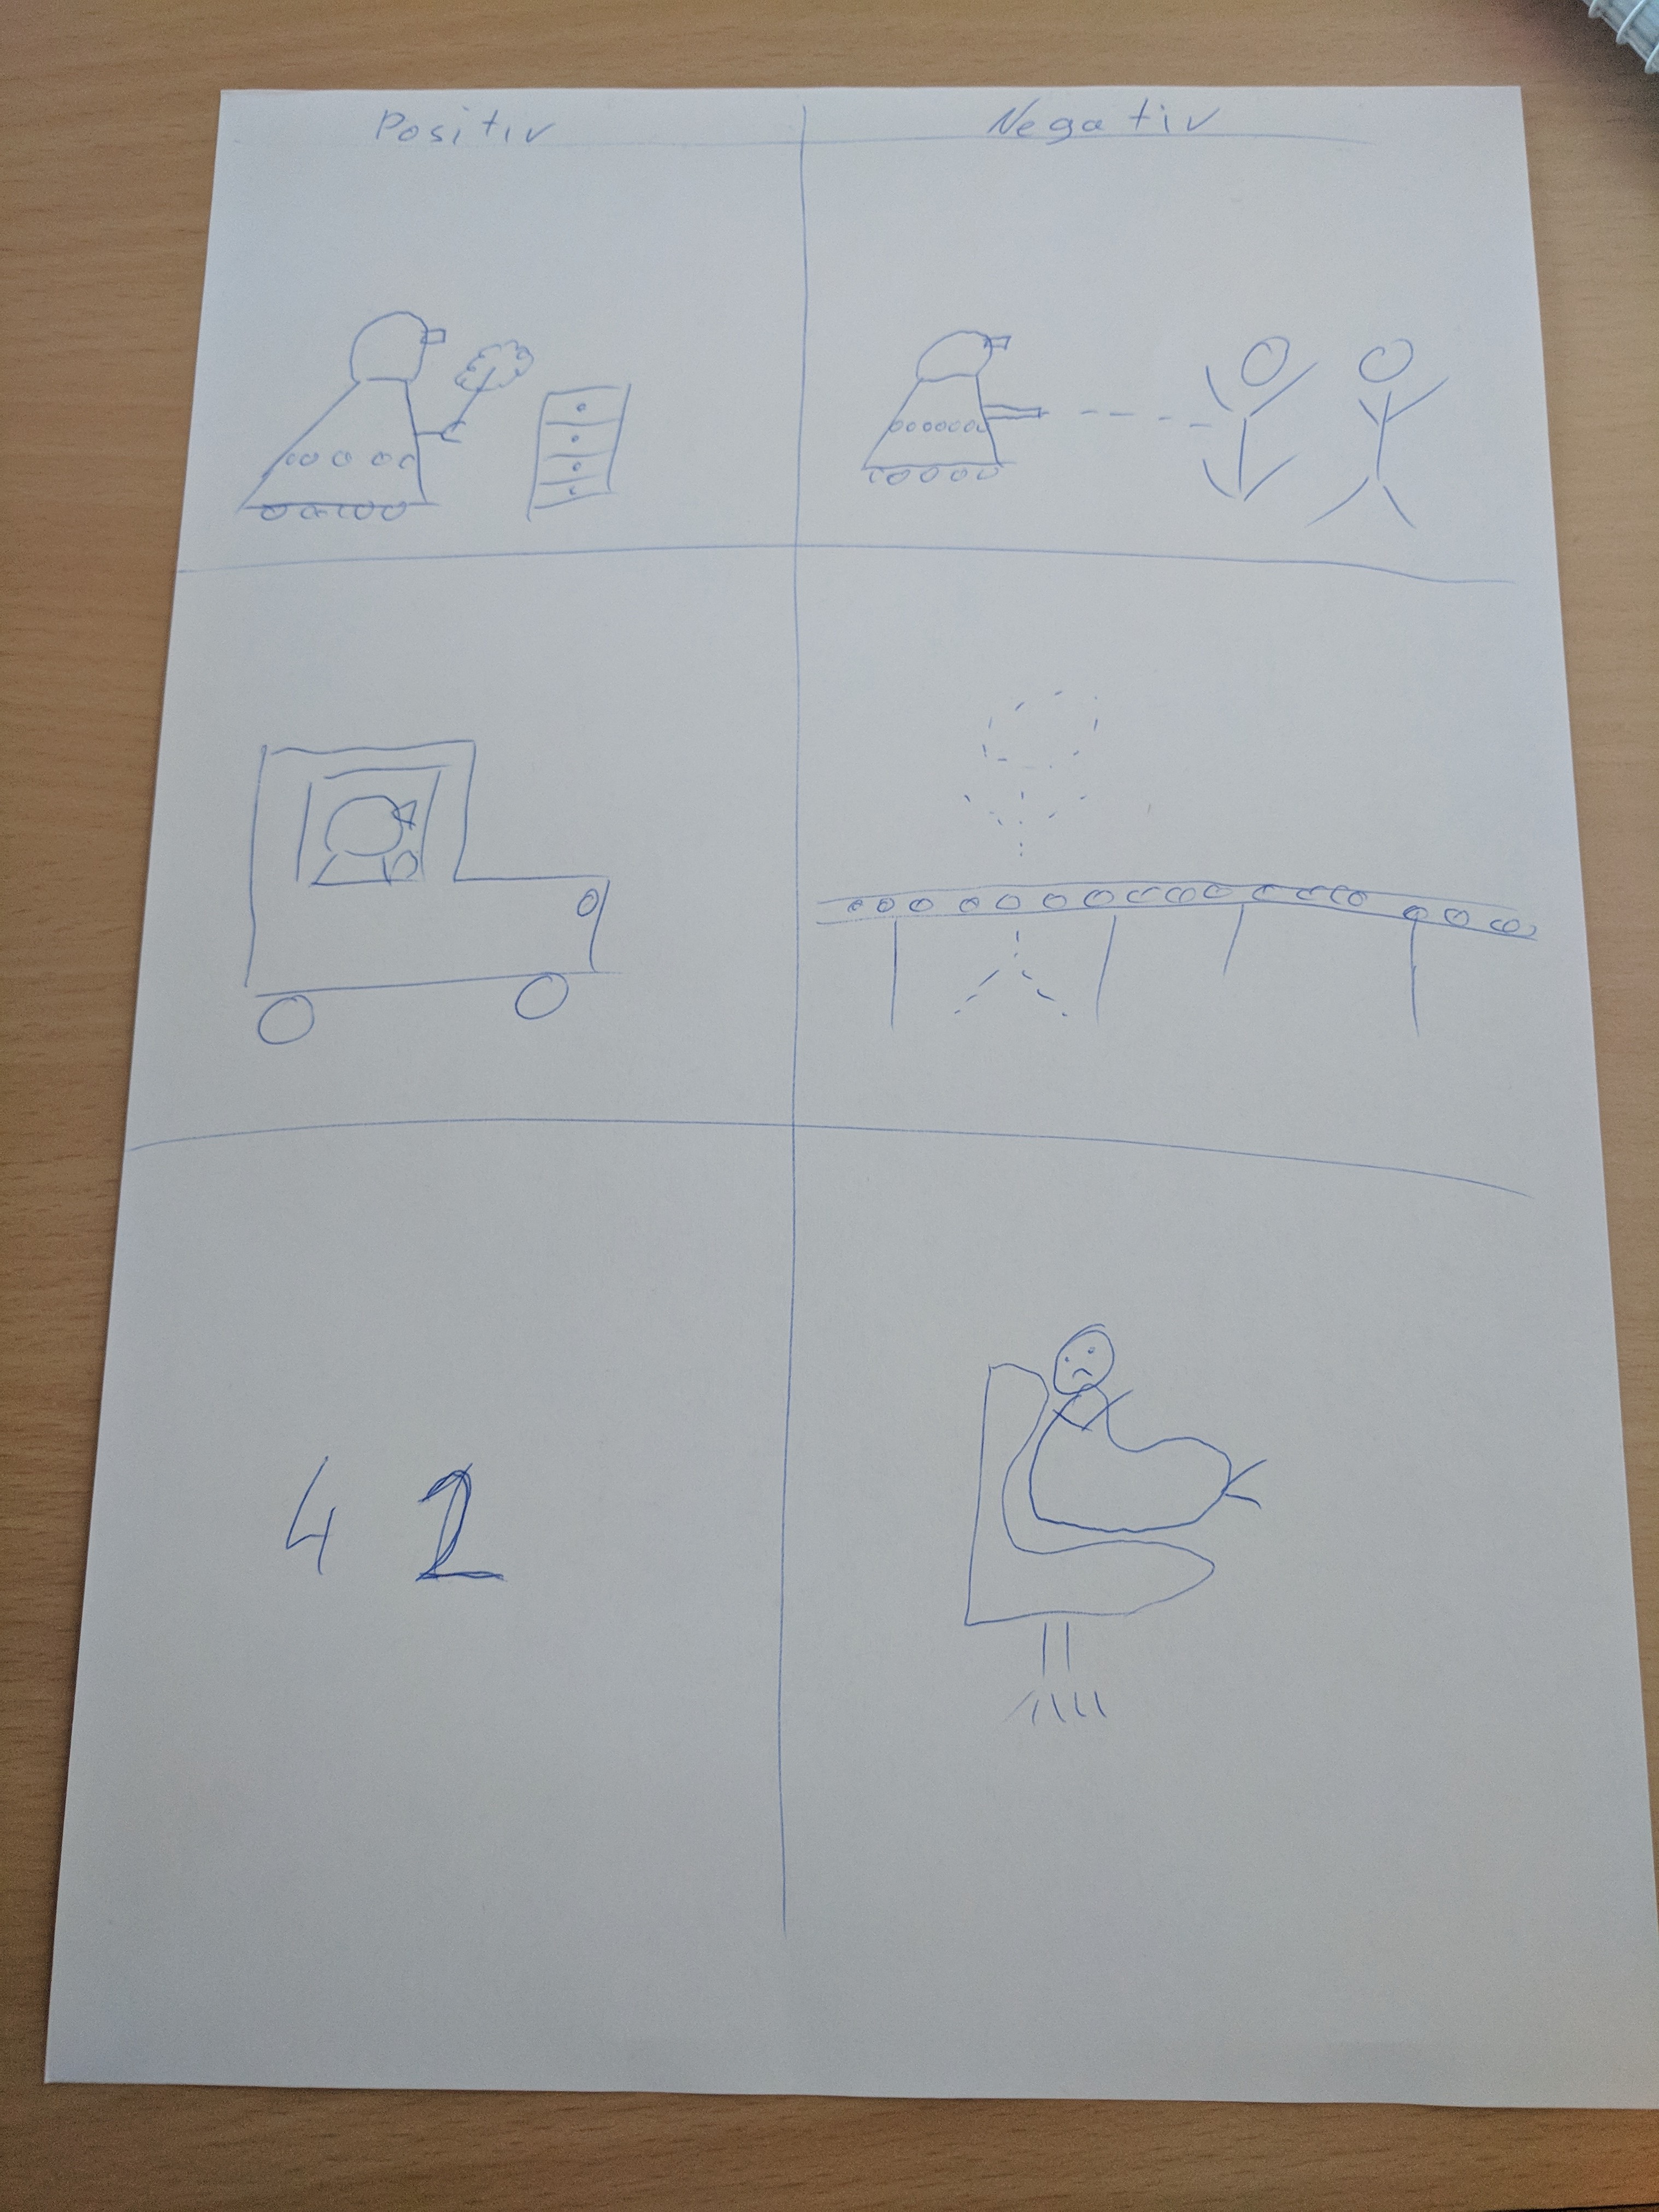 Positiv Negativ
42